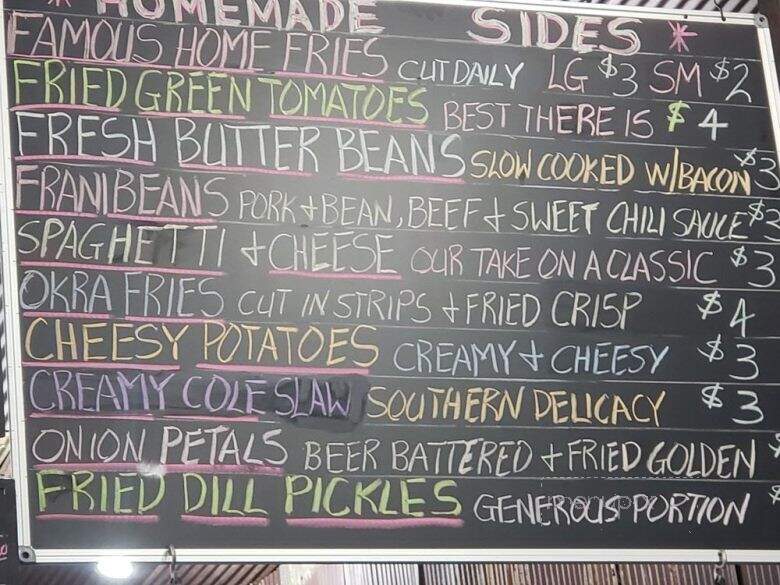 * HOMEMADE SIDES *
FAMOUS HOME FRIES CUT DAILY LG $3 SM $2
FRIED GREEN TOMATOES BEST THERE IS $4
FRESH BUTTER BEANS SLOW COOKED W/BACON $3
FRANIBEANS PORK + BEAN, BEEF + SWEET CHILI SAUCE $3
SPAGHETTI + CHEESE OUR TAKE ON A CLASSIC $3
OKRA FRIES CUT IN STRIPS + FRIED CRISP $4
CHEESY POTATOES CREAMY + CHEESY $3
CREAMY COLE SLAW SOUTHERN DELICACY $3
ONION PETALS BEER BATTERED + FRIED GOLDEN $
FRIED DILL PICKLES GENEROUS PORTION $